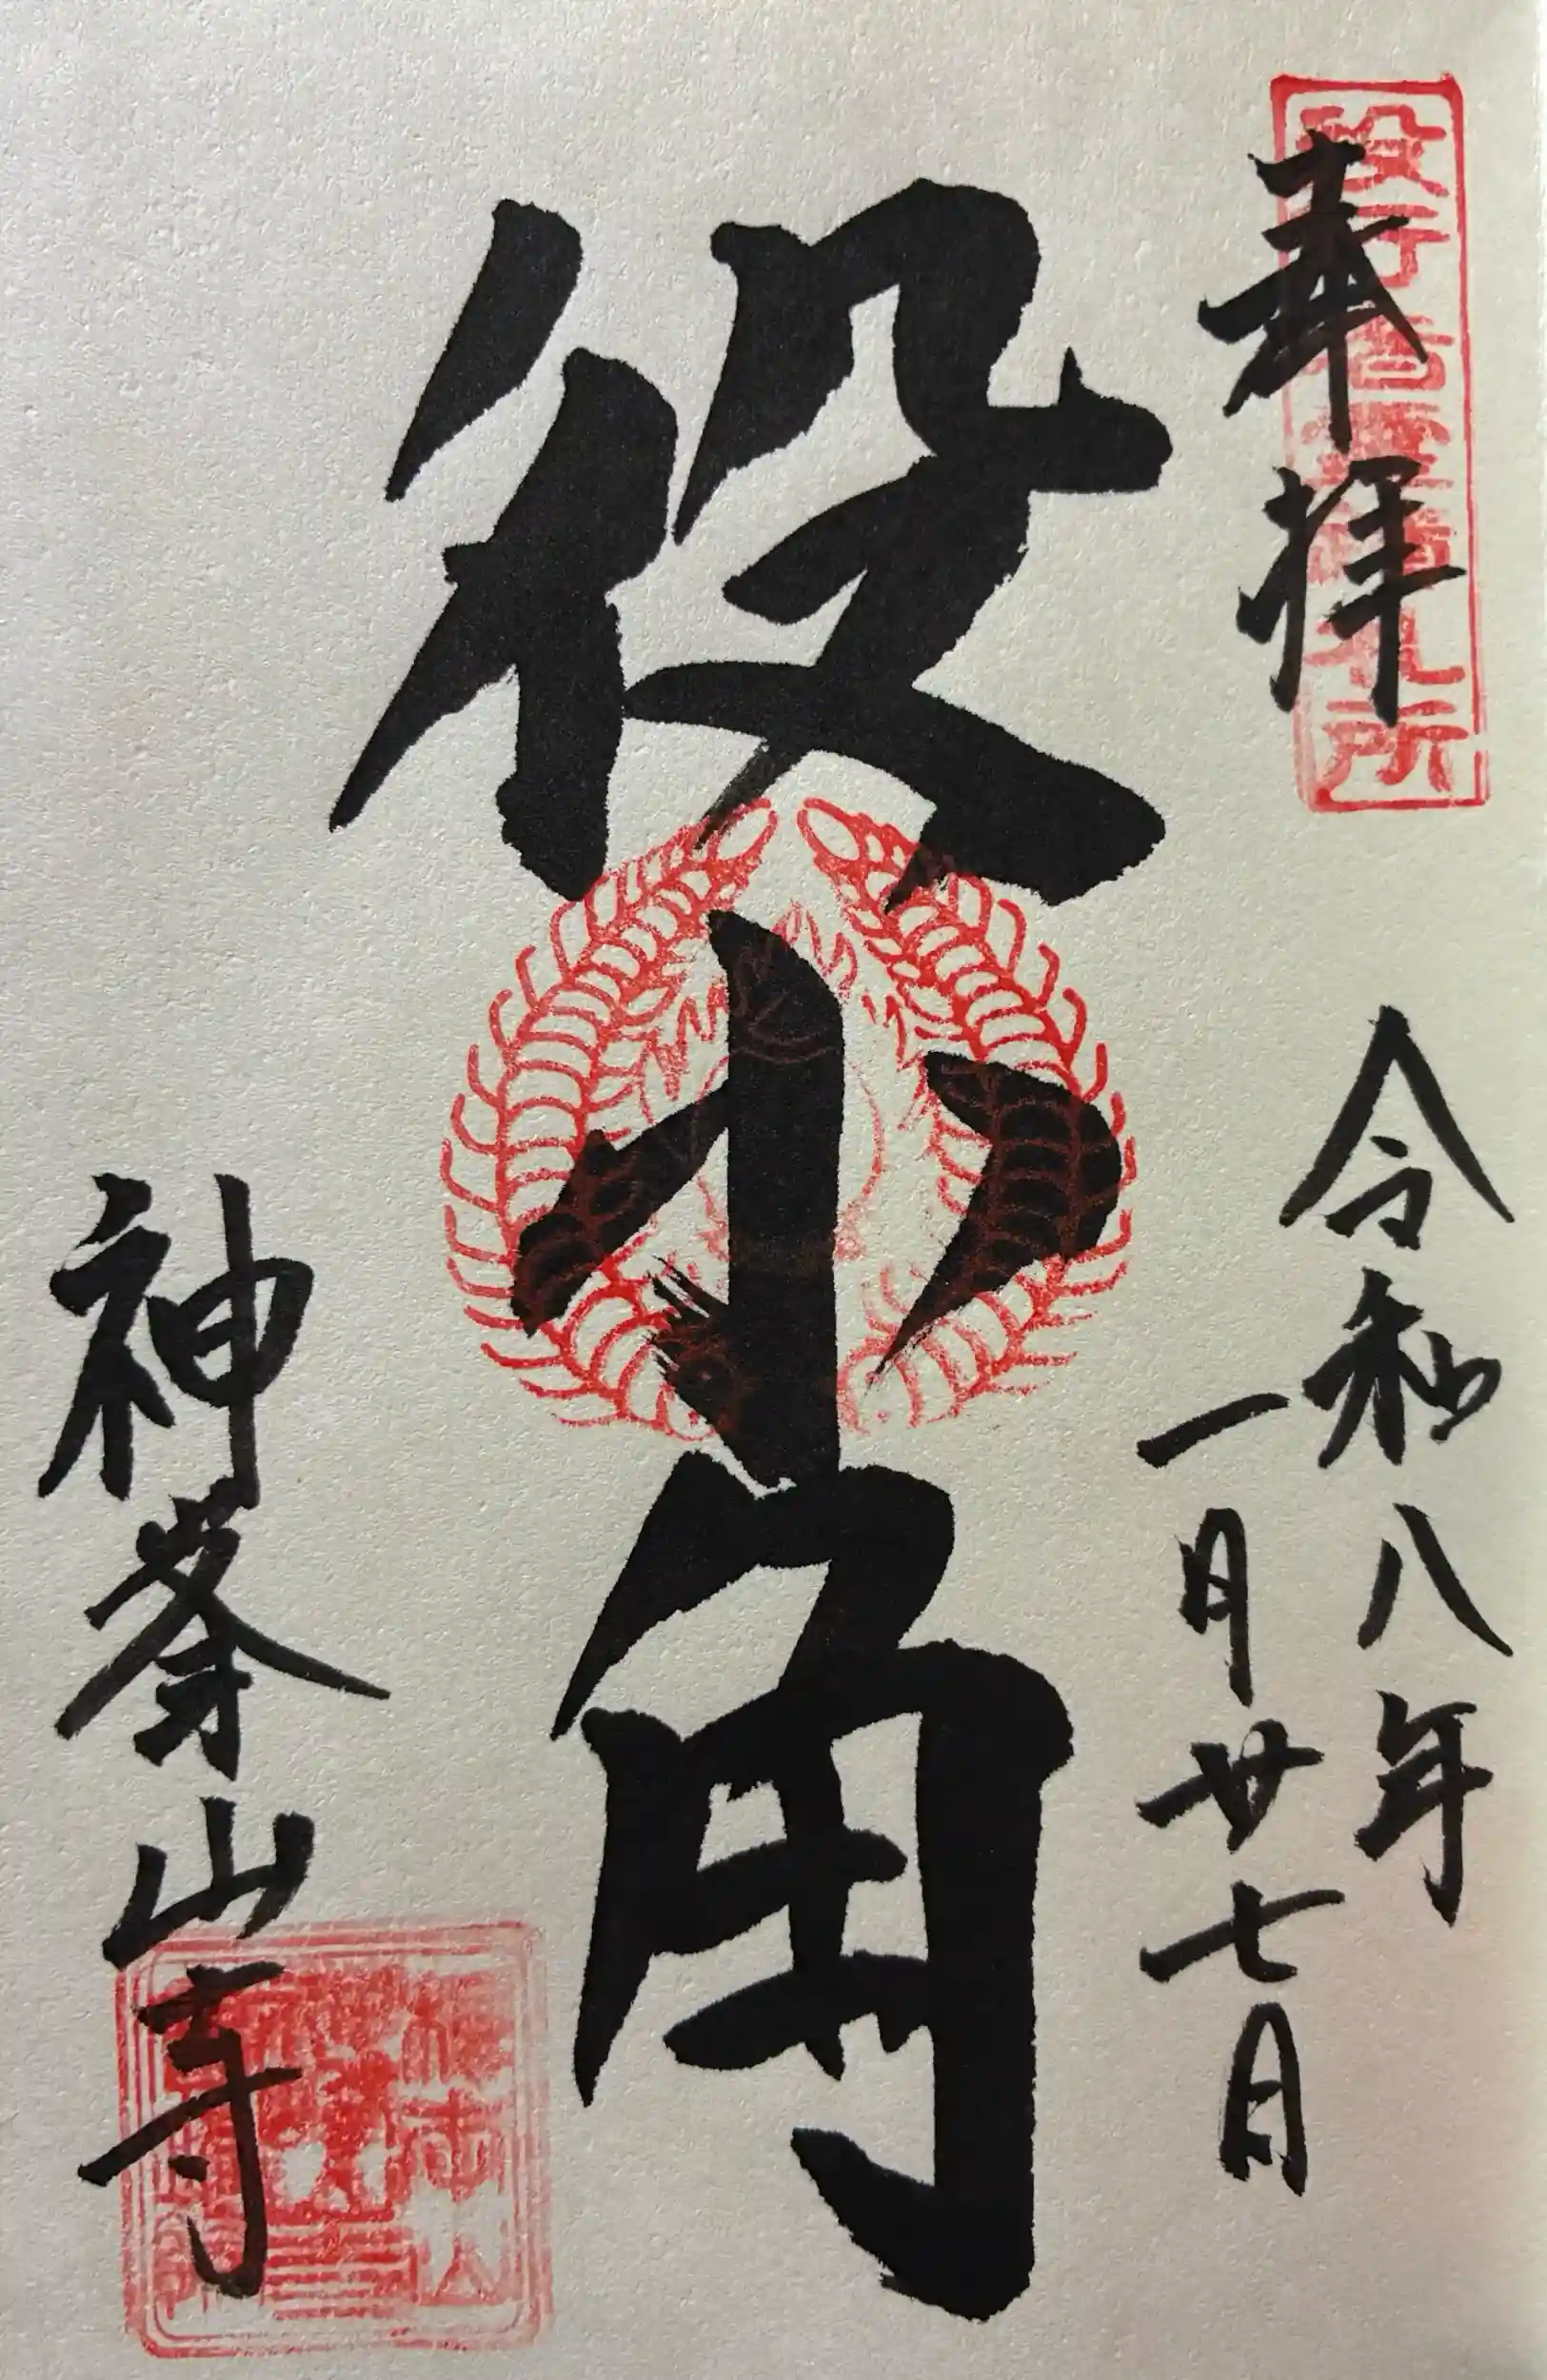 奉拝
役行者霊蹟札所
令和八年
一月廿七日
役小角
神峯山寺